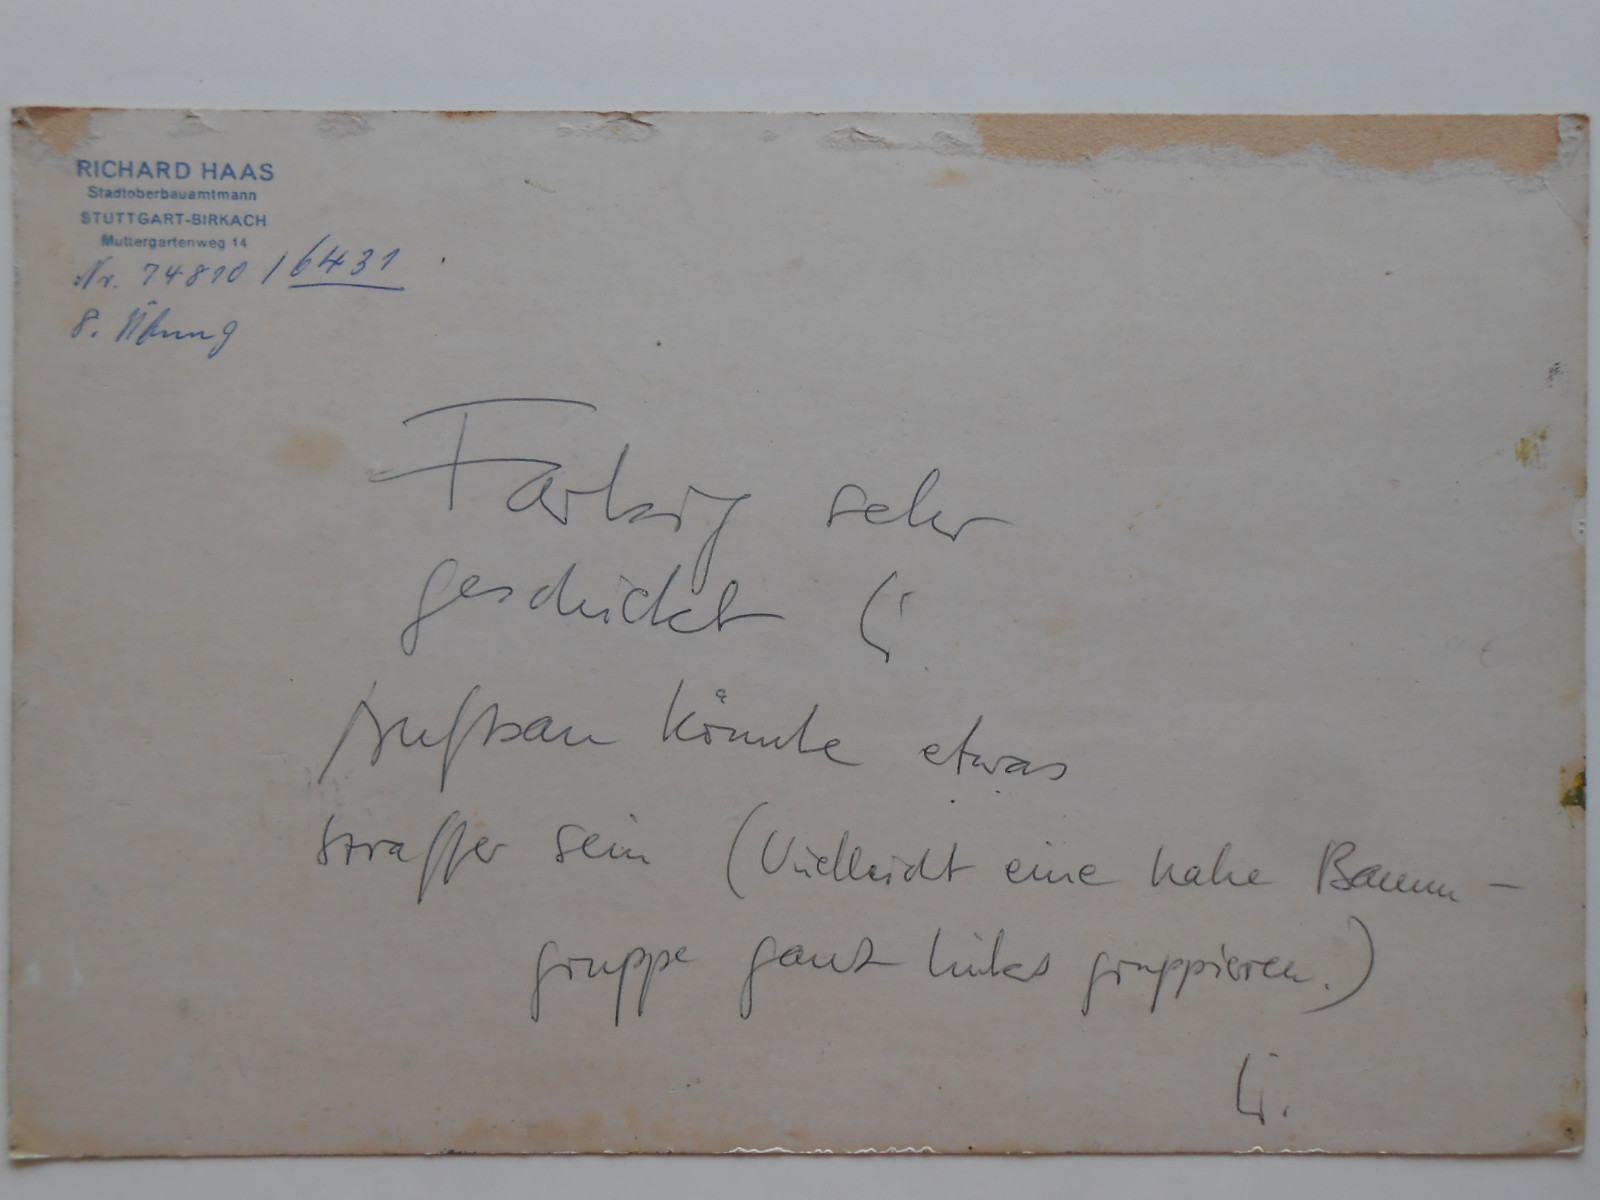 RICHARD HAAS
Stadtoberbauamtmann
STUTTGART-BIRKACH
Muttergartenweg 14
Nr. 74810 / 6431
8. Übung
Farbig sehr
geschickt
Aufbau könnte etwas
straffer sein (Vielleicht eine nahe Baum-
gruppe ganz links gruppieren.)